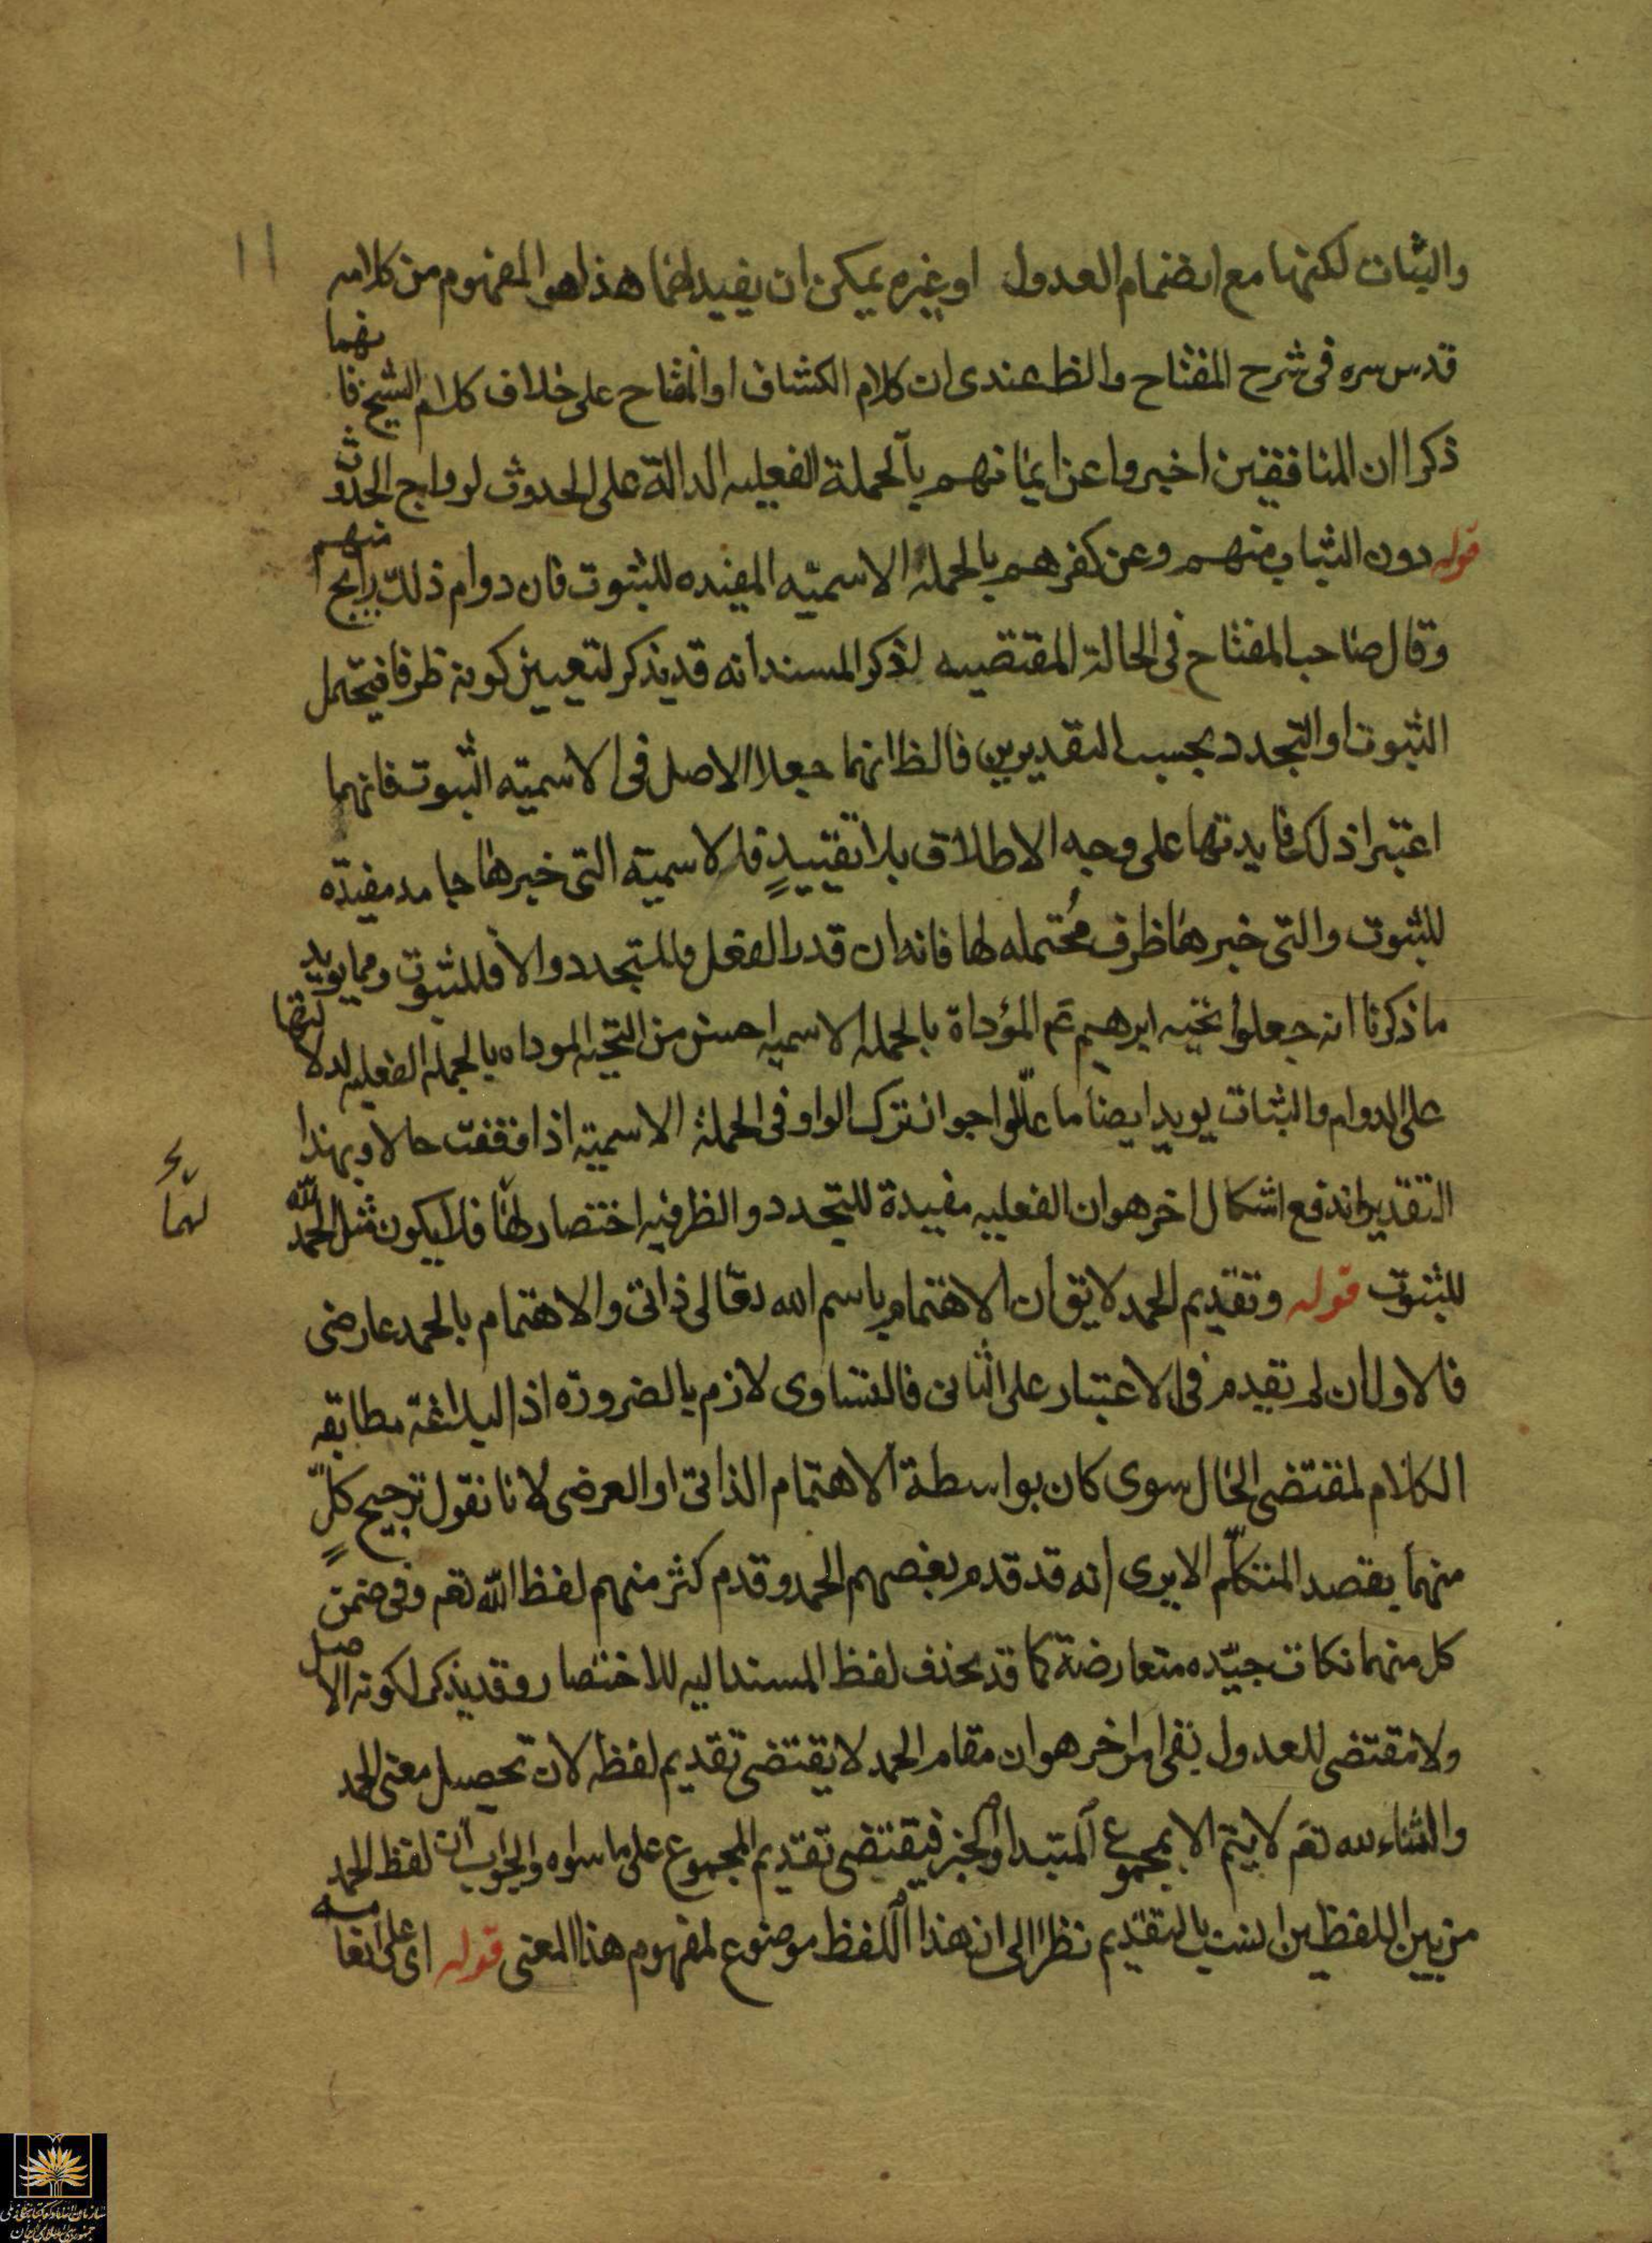 ١١
والثبات لكنها مع انضمام العدول او غيره يمكن ان يفيدهما هذا هو المفهوم من كلامه
قدس سره فى شرح المفتاح والظ عندى ان كلام الكشاف او المفتاح على خلاف كلام الشيخ فانهما
ذكرا ان المنافقين اخبروا عن ايمانهم بالجملة الفعليه الدالة على الحدوث لرواج الحدوث
قوله دون الثبات منهم وعن كفرهم بالجملة الاسميّه المفيده للثبوت فان دوام ذلك رايج منهم
وقال صاحب المفتاح فى الحالة المقتضيه لذكر المسند انه قد يذكر لتعيين كونه ظرفا فيحتمل
الثبوت او التجدد بحسب التقديرين فالظ انهما جعلا الاصل فى الاسميّه الثبوت فانهما
اعتبرا ذلك فايدتها على وجه الاطلاق بلا تقييدٍ فالاسميّة التى خبرها جامد مفيدة
للثبوت والتى خبرها ظرف مُحتمله لها فانه ان قدر الفعل فللتجدد والا فللثبوت ومما يويد
ما ذكرنا انه جعلوا تحيه ابرهيم عم المؤداة بالجمله الاسميه احسن من التحيه الموداه بالجمله الفعليه لدلالتها
على الدوام والثبات يويد ايضا ما علّلوا جواز ترك الواو فى الجملة الاسميّه اذا وقفت حالا وبهذا
التقدير اندفع اشكال اخر هو ان الفعليه مفيدة للتجدد والظرفيه اختصار لها فلا يكون مثل الحمد لله
لهما
للثبوت قوله وتقديم الحمد لا يق ان الاهتمام باسم الله تعالى ذاتى والاهتمام بالحمد عارضى
فالاول ان لم يقدم فى الاعتبار على الثانى فالتساوى لازم بالضرورة اذ البلاغة مطابقه
الكلام لمقتضى الحال سوى كان بواسطة الاهتمام الذاتى او العرضى لانا نقول ترجيح كلٍّ
منهما بقصد المتكلّم الا يرى انه قد قدم بعضهم الحمد وقدم كثر منهم لفظ اللّه تعم وفى ضمن
كل منهما نكات جيّده متعارضة كما قد يحذف لفظ المسند اليه للاختصار وقد يذكر لكونه الاصل
ولا مقتضى للعدول بقى امر اخر هو ان مقام الحمد لا يقتضى تقديم لفظه لان تحصيل معنى الحمد
والثناء لله تعم لا يتم الا بمجموع المتبدا والخبر فيقتضى تقديم المجموع على ما سواه والجواب ان لفظ الحمد
من بين اللفظين انسب بالتقديم نظرا الى ان هذا اللفظ موضوع لمفهوم هذا المعنى قوله اى على انعامه